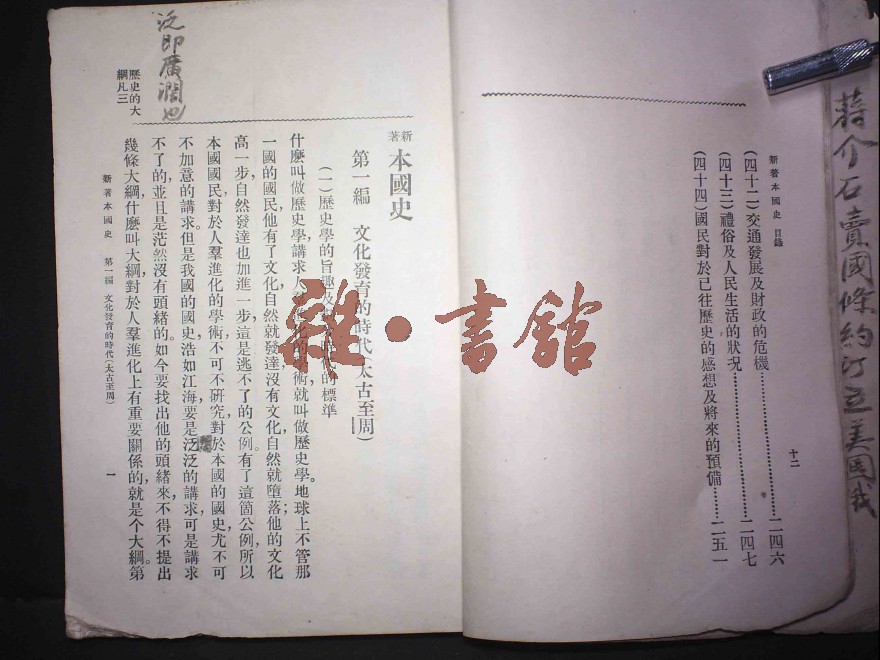 蔣介石賣國條約訂立美國我
新著本國史 目錄
十二
(四十二)交通發展及財政的危機……二四六
(四十三)禮俗及人民生活的狀況……二四七
(四十四)國民對於已往歷史的感想及將來的預備……二五一
新著 本國史
第一編 文化發育的時代(太古至周)
(一)歷史學的旨趣及 的標準
什麽叫做歷史學,講求人羣進化的學術,就叫做歷史學。地球上不管那
一國的國民,他有了文化,自然就發達,沒有文化,自然就墮落;他的文化
高一步,自然發達也加進一步,這是逃不了的公例。有了這箇公例,所以
本國國民對於人羣進化的學術,不可不研究,對於本國的國史,尤不可
不加意的講求。但是我國的國史,浩如江海,要是泛泛的講求,可是講求
不了的,並且是茫然沒有頭緒的。如今要找出他的頭緒來,不得不提出
幾條大綱,什麽叫大綱,對於人羣進化上有重要關係的,就是个大綱。第
歷史的大
綱凡三
泛即廣濶也
新著本國史 第一編 文化發育的時代(太古至周)
一
雜·書館